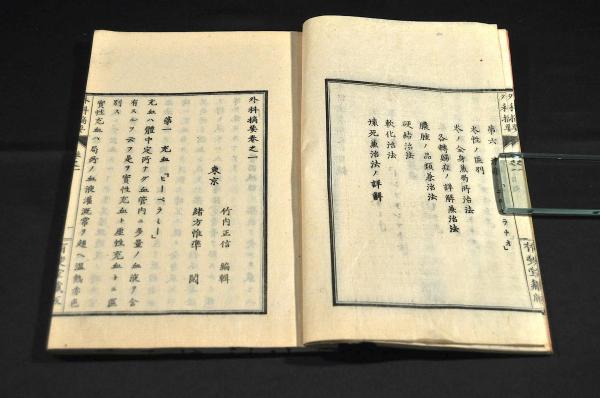 第六
炎性ノ區別
炎ノ全身並局所治法
各轉歸症ノ詳解並治法
膿腫ノ品類並治法
硬結治法
軟化治法
壞死並治法ノ詳解
外科摘要巻之一
東京
竹内正信 編輯
緒方惟準 閲
第一 充血
充血ハ體中定所ナク血管内ニ多量ノ血液ヲ含
有スルヲ云フ是ヲ實性充血ト虚性充血トニ區
別ス
實性充血ハ局所ノ血液灌漑常ヲ超ヘ温熱赤色
外科摘要